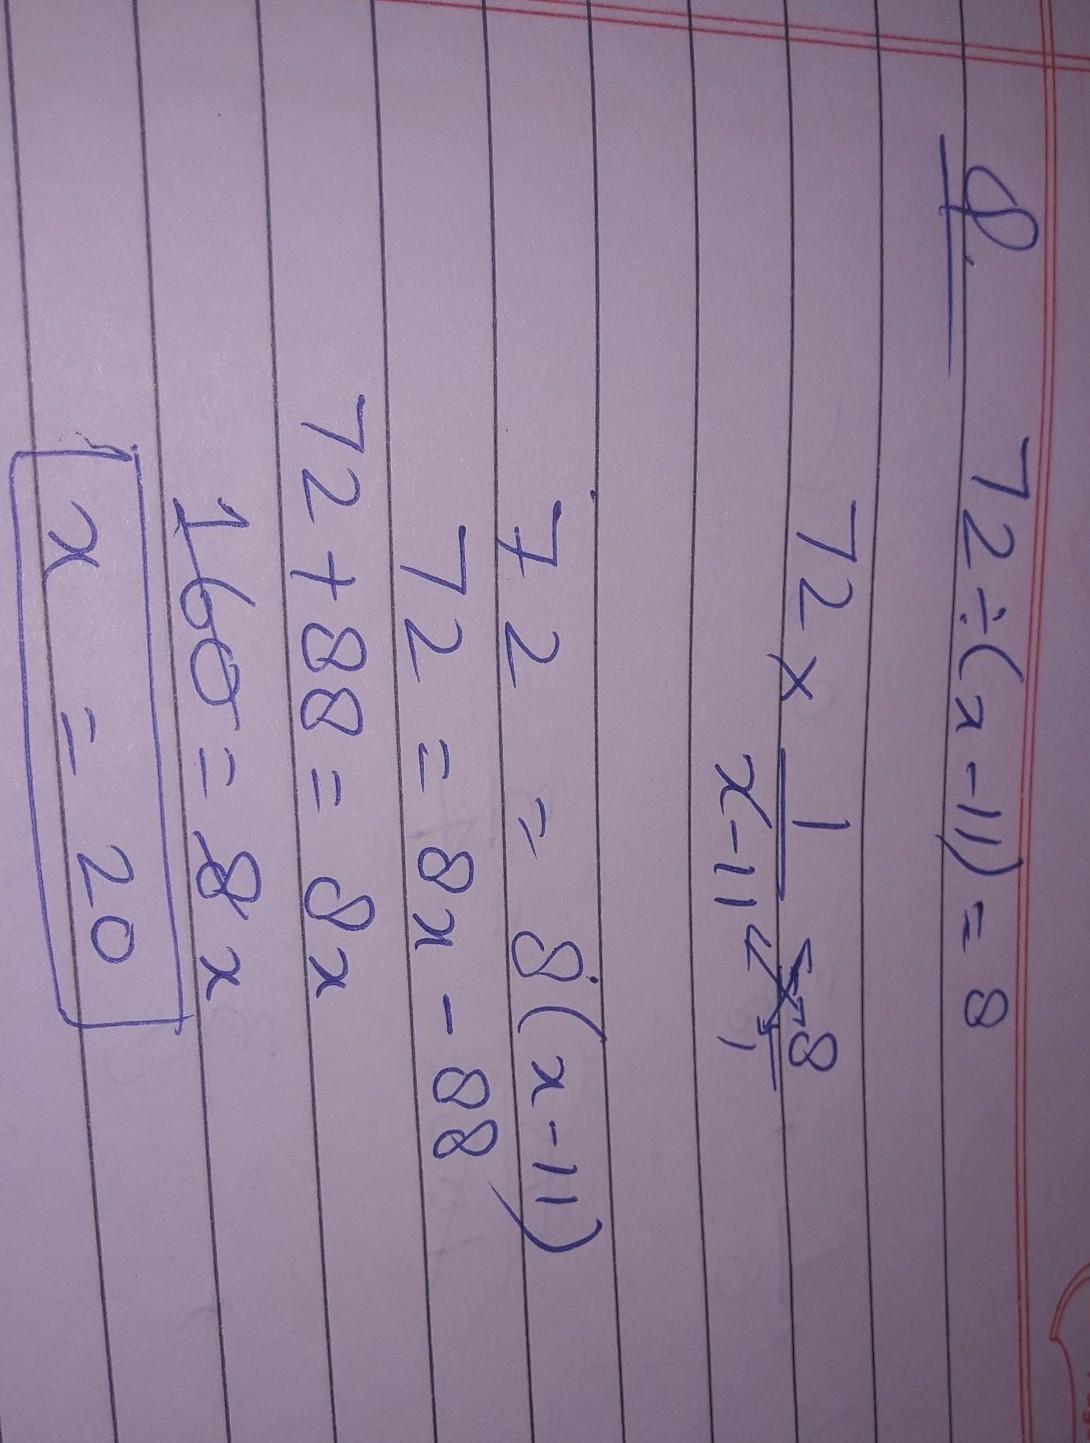 Q. 72÷(x-11) = 8
72 × 1/x-11 = 8/1
72 = 8(x-11)
72 = 8x - 88
72+88 = 8x
160 = 8x
x = 20